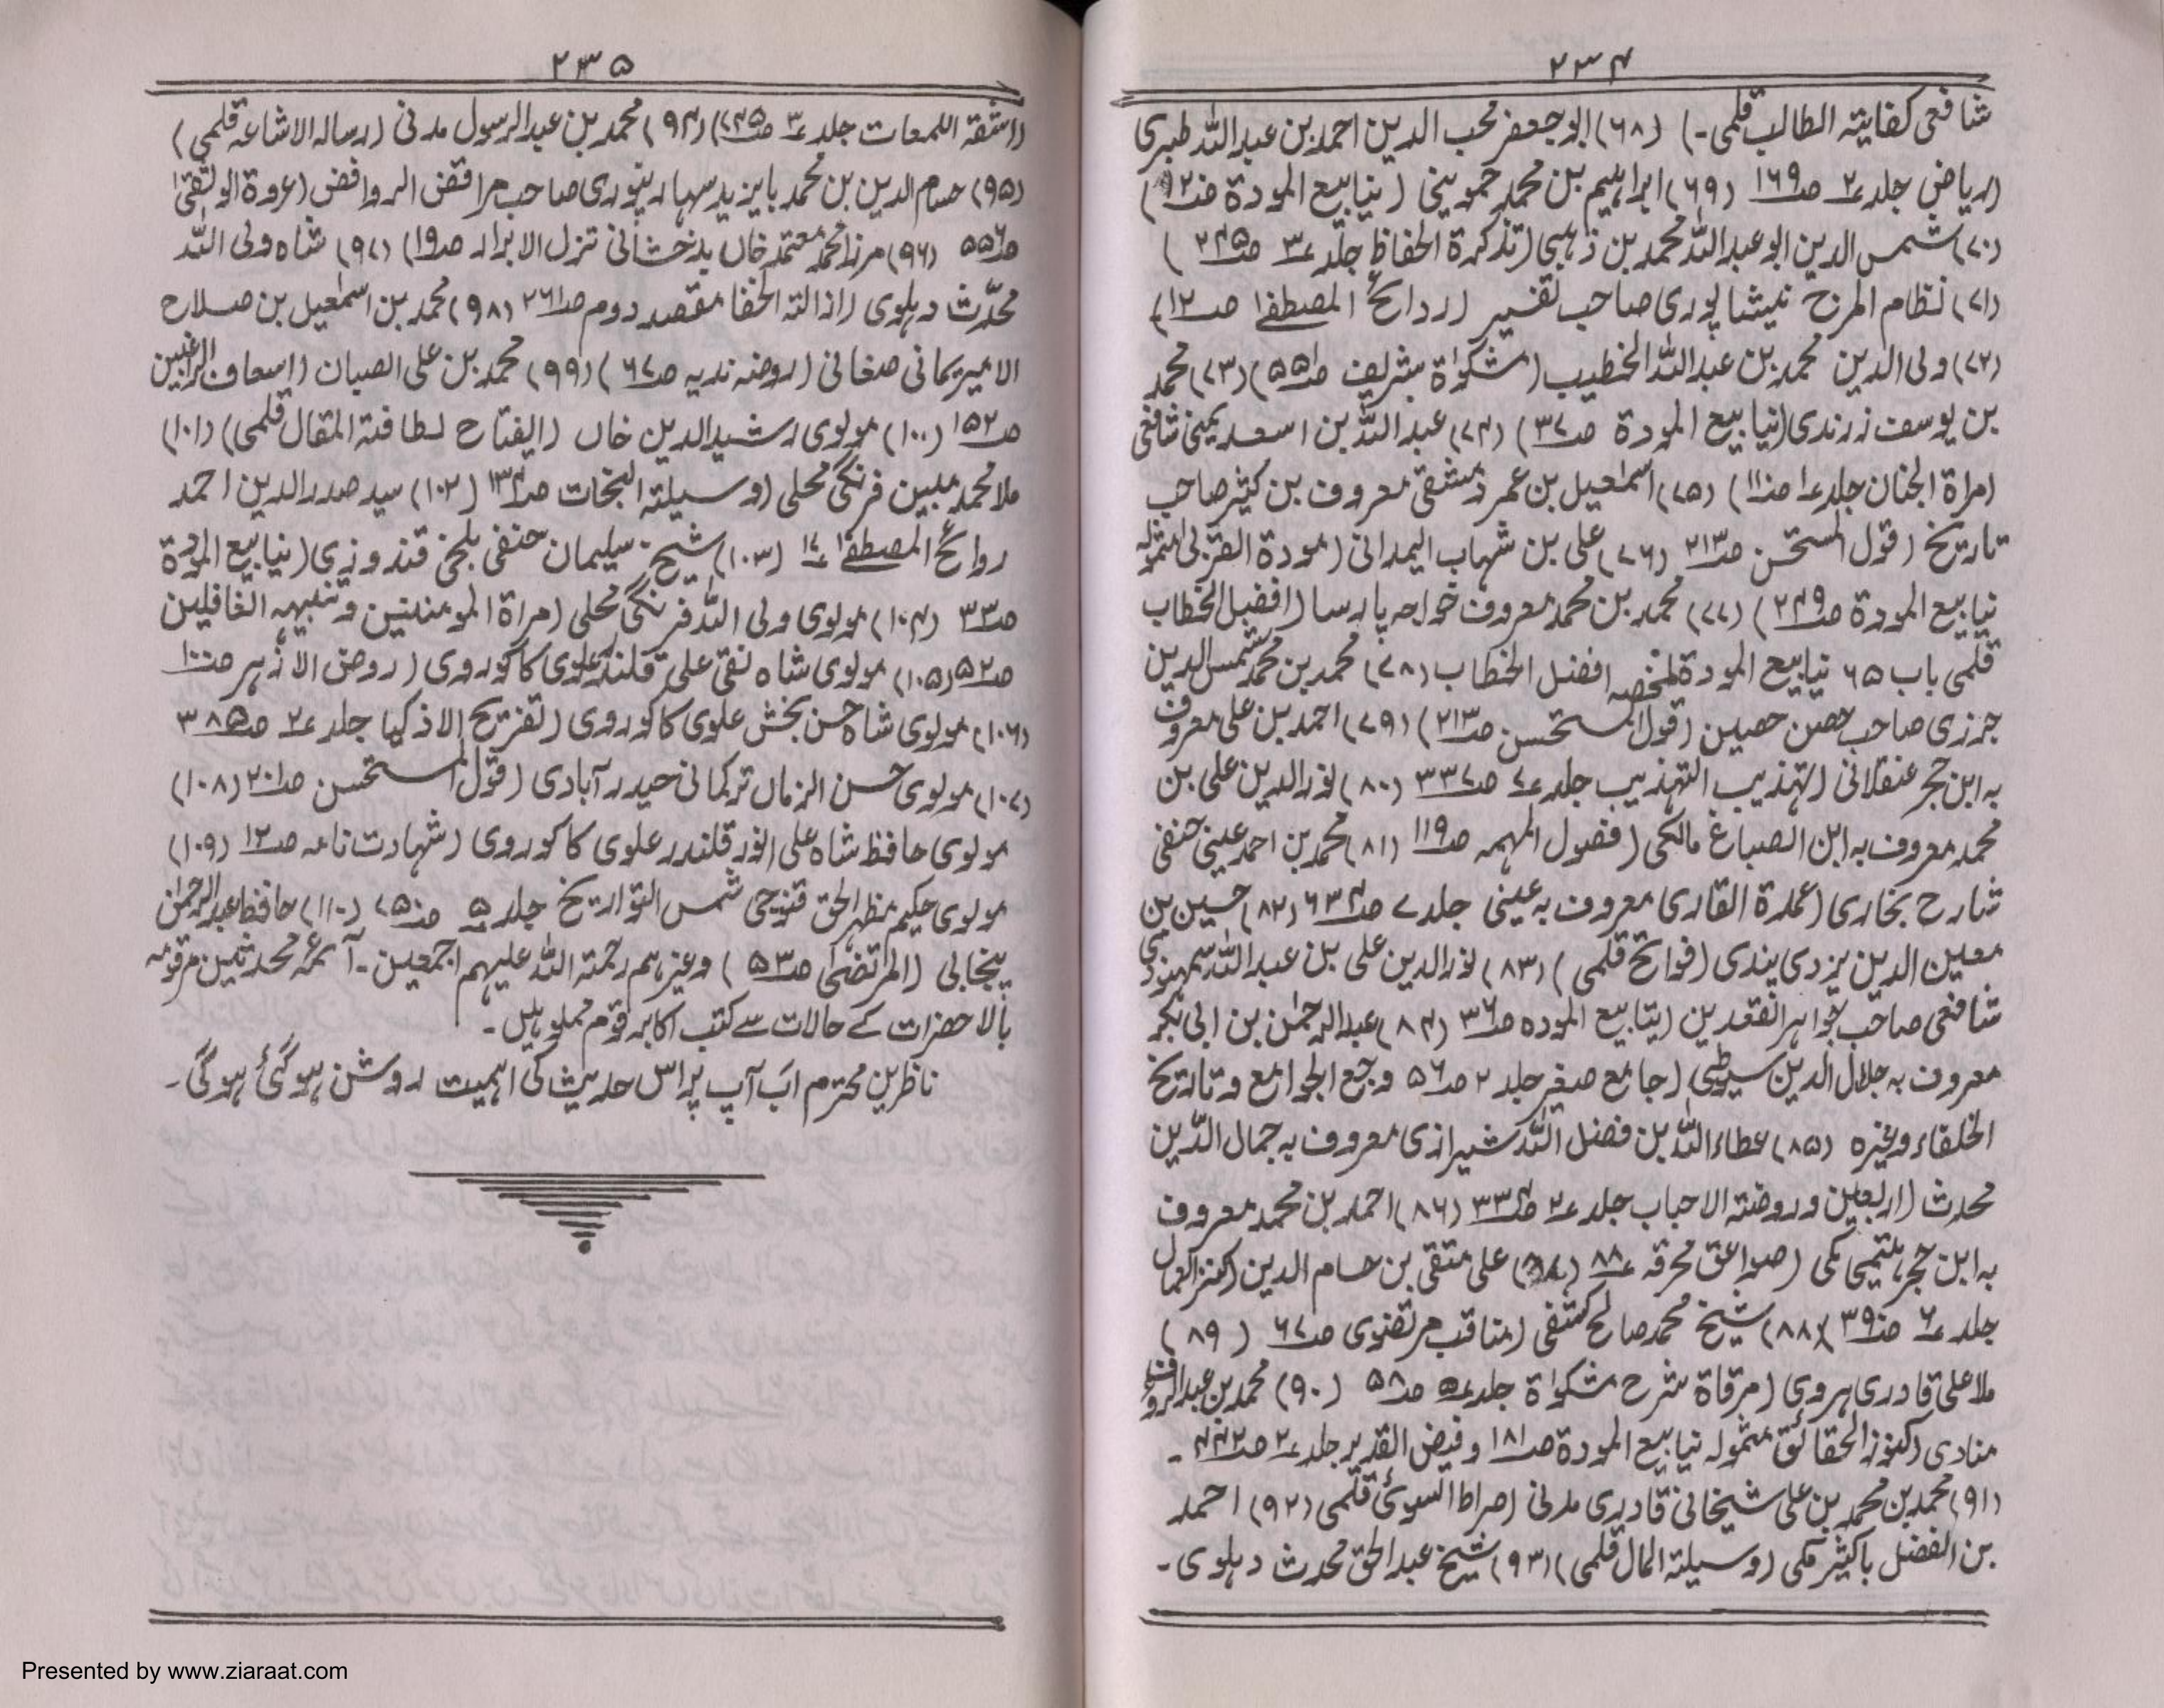 ۲۳۴
شافعی کفایتہ الطالب قلمی ۔) (۶۸) ابو جعفر محب الدین احمد بن عبداللہ طبری
(ریاض جلد ۲ ص۱۶۹ (۶۹) ابراہیم بن محمد حموینی (ینابیع المودۃ
(۷۰) شمس الدین ابو عبداللہ محمد بن ذہبی (تذکرۃ الحفاظ جلد ۳ ص۲۴۵ )
(۷۱) نظام المرزح نیشاپوری صاحب تفسیر (ردائح المصطفےٰ ص۱۲)
(۷۲) ولی الدین محمد بن عبداللہ الخطیب (مشکوٰۃ شریف ص۵۵) (۷۳) محمد
بن یوسف زرندی (نیابیع المودۃ ص۳۷) (۷۴) عبداللہ بن اسعد یمنی شافعی
(مراۃ الجنان جلد ۱ ص۱۱۰) (۷۵) اسمٰعیل بن عمر دمشقی معروف بن کثیر صاحب
تاریخ (قول المستحسن ص۲۱۳ (۷۶) علی بن شہاب الہمدانی (مودۃ القربیٰ مشمولہ
نیابیع المودۃ ص۲۴۹) (۷۷) محمد بن محمد معروف خواجہ پارسا (افضل الخطاب
قلمی باب ۶۵ نیابیع المودۃ ملخصہ افضل الخطاب (۷۸) محمد بن محمد شمس الدین
جرزی صاحب حصن حصین (قول المستحسن ص۲۱۳) (۷۹) احمد بن علی معروف
بہ ابن حجر عنقلانی (تہذیب التہذیب جلد ۷ ص۳۳۷ (۸۰) نورالدین علی بن
محمد معروف بہ ابن الصباغ مالکی (فصول المہمہ ص۱۱۹ (۸۱) محمد بن احمد عینی حنفی
شارح بخاری (عمدۃ القاری معروف بہ عینی جلد ۷ ص۶۳۴ (۸۲) حسین بن
معین الدین یزدی یندی (فواتح قلمی) (۸۳) نورالدین علی بن عبداللہ سمہودی
شافعی صاحب جواہر العقدین (یتابیع المودہ ص۳۶ (۸۴) عبدالرحمٰن بن ابی بکر
معروف بہ جلال الدین سیوطی (جامع صغیر جلد ۲ ص۵۶ و جمع الجوامع و تاریخ
الخلفاء وغیرہ (۸۵) عطاءاللہ بن فضل اللہ شیرازی معروف بہ جمال الدّین
محدث (اربعین و روضتہ الاحباب جلد ۲ ص۳۳۴ (۸۶) احمد بن محمد معروف
بہ ابن حجر ہتیمی مکی (صواعق محرقہ ۸۸ (۸۷) علی متقی بن حسام الدین (کنزالعمال
جلد ۶ ص۳۹۰ (۸۸) شیخ محمد صالح کشفی (مناقب مرتضوی ص۶۷ (۸۹)
ملا علی قادری ہروی (مرقاۃ شرح مشکوٰۃ جلد ۵ ص۵۸ (۹۰) محمد بن عبدالرؤف
منادی (کنوز الحقائق مشمولہ نیابیع المودۃ ص۱۸۱ و فیض القدیر جلد ۲ ص۴۴۲ ۔
(۹۱) محمد بن محمد بن علی شیخانی قادری مدنی (صراط السوئ قلمی (۹۲) احمد
بن الفضل باکثیر مکی (وسیلتہ المال قلمی) (۹۳) شیخ عبدالحق محدث دہلوی ۔
۲۳۵
(اشقۃ اللمعات جلد ۳ ص۲۴۵) (۹۴) محمد بن عبدالرسول مدنی (رسالہ الاشاعہ قلمی)
(۹۵) حسام الدین بن محمد بایزید سہارنپوری صاحب مرافض الروافض (عروۃ الوثقیٰ
ص۵۵۶ (۹۶) مرزا محمد معتمد خاں بدخشانی تنزل الابرار ص۱۹) (۹۷) شاہ ولی اللہ
محدّث دہلوی (ازالتہ الخفا مقصد دوم ص۲۶۱ (۹۸) محمد بن اسمٰعیل بن صلاح
الامیر یمانی صغانی (روضہ ندیہ ص۶۷) (۹۹) محمد بن علی الصبان (اسعاف الراغبین
ص۱۵۲ (۱۰۰) مولوی رشیدالدین خاں (الفتاح لطافتہ المقال قلمی) (۱۰۱)
ملا محمد مبین فرنگی محلی (وسیلتہ النجات ص۱۳۴ (۱۰۲) سید صدرالدین احمد
روائح المصطفےٰ ۱۷ (۱۰۳) شیخ سلیمان حنفی بلخی قندوزی (نیابیع المودۃ
ص۳۳ (۱۰۴) مولوی ولی اللہ فرنگی محلی (مراۃ المومنین و تنبیہہ الغافلین
ص۵۲ (۱۰۵) مولوی شاہ نقی علی قلندر علوی کاکوروی (روض الازہر ص۱۰۰
(۱۰۶) مولوی شاہ حسن بخش علوی کاکوروی (تفریح الاذکیا جلد ۲ ص۳۸۵
(۱۰۷) مولوی حسن الزماں ترکمانی حیدرآبادی (قول المستحسن ص۲۰۱ (۱۰۸)
مولوی حافظ شاہ علی انور قلندر علوی کاکوروی (شہادت نامہ ص۱۲ (۱۰۹)
مولوی حکیم مظہر الحق قنوجی شمس التواریخ جلد ۵ ص۷۵۰ (۱۱۰) حافظ عبدالرحمٰن
پنجابی (المرتضیٰ ص۵۳) وغیرہم رحمتہ اللہ علیہم اجمعین ۔ آئمہ محدثین مرقومہ
بالا حضرات کے حالات سے کتب اکابر قوم مملو ہیں ۔
ناظرین محترم اب آپ پر اس حدیث کی اہمیت روشن ہو گئی ہو گی ۔
Presented by www.ziaraat.com